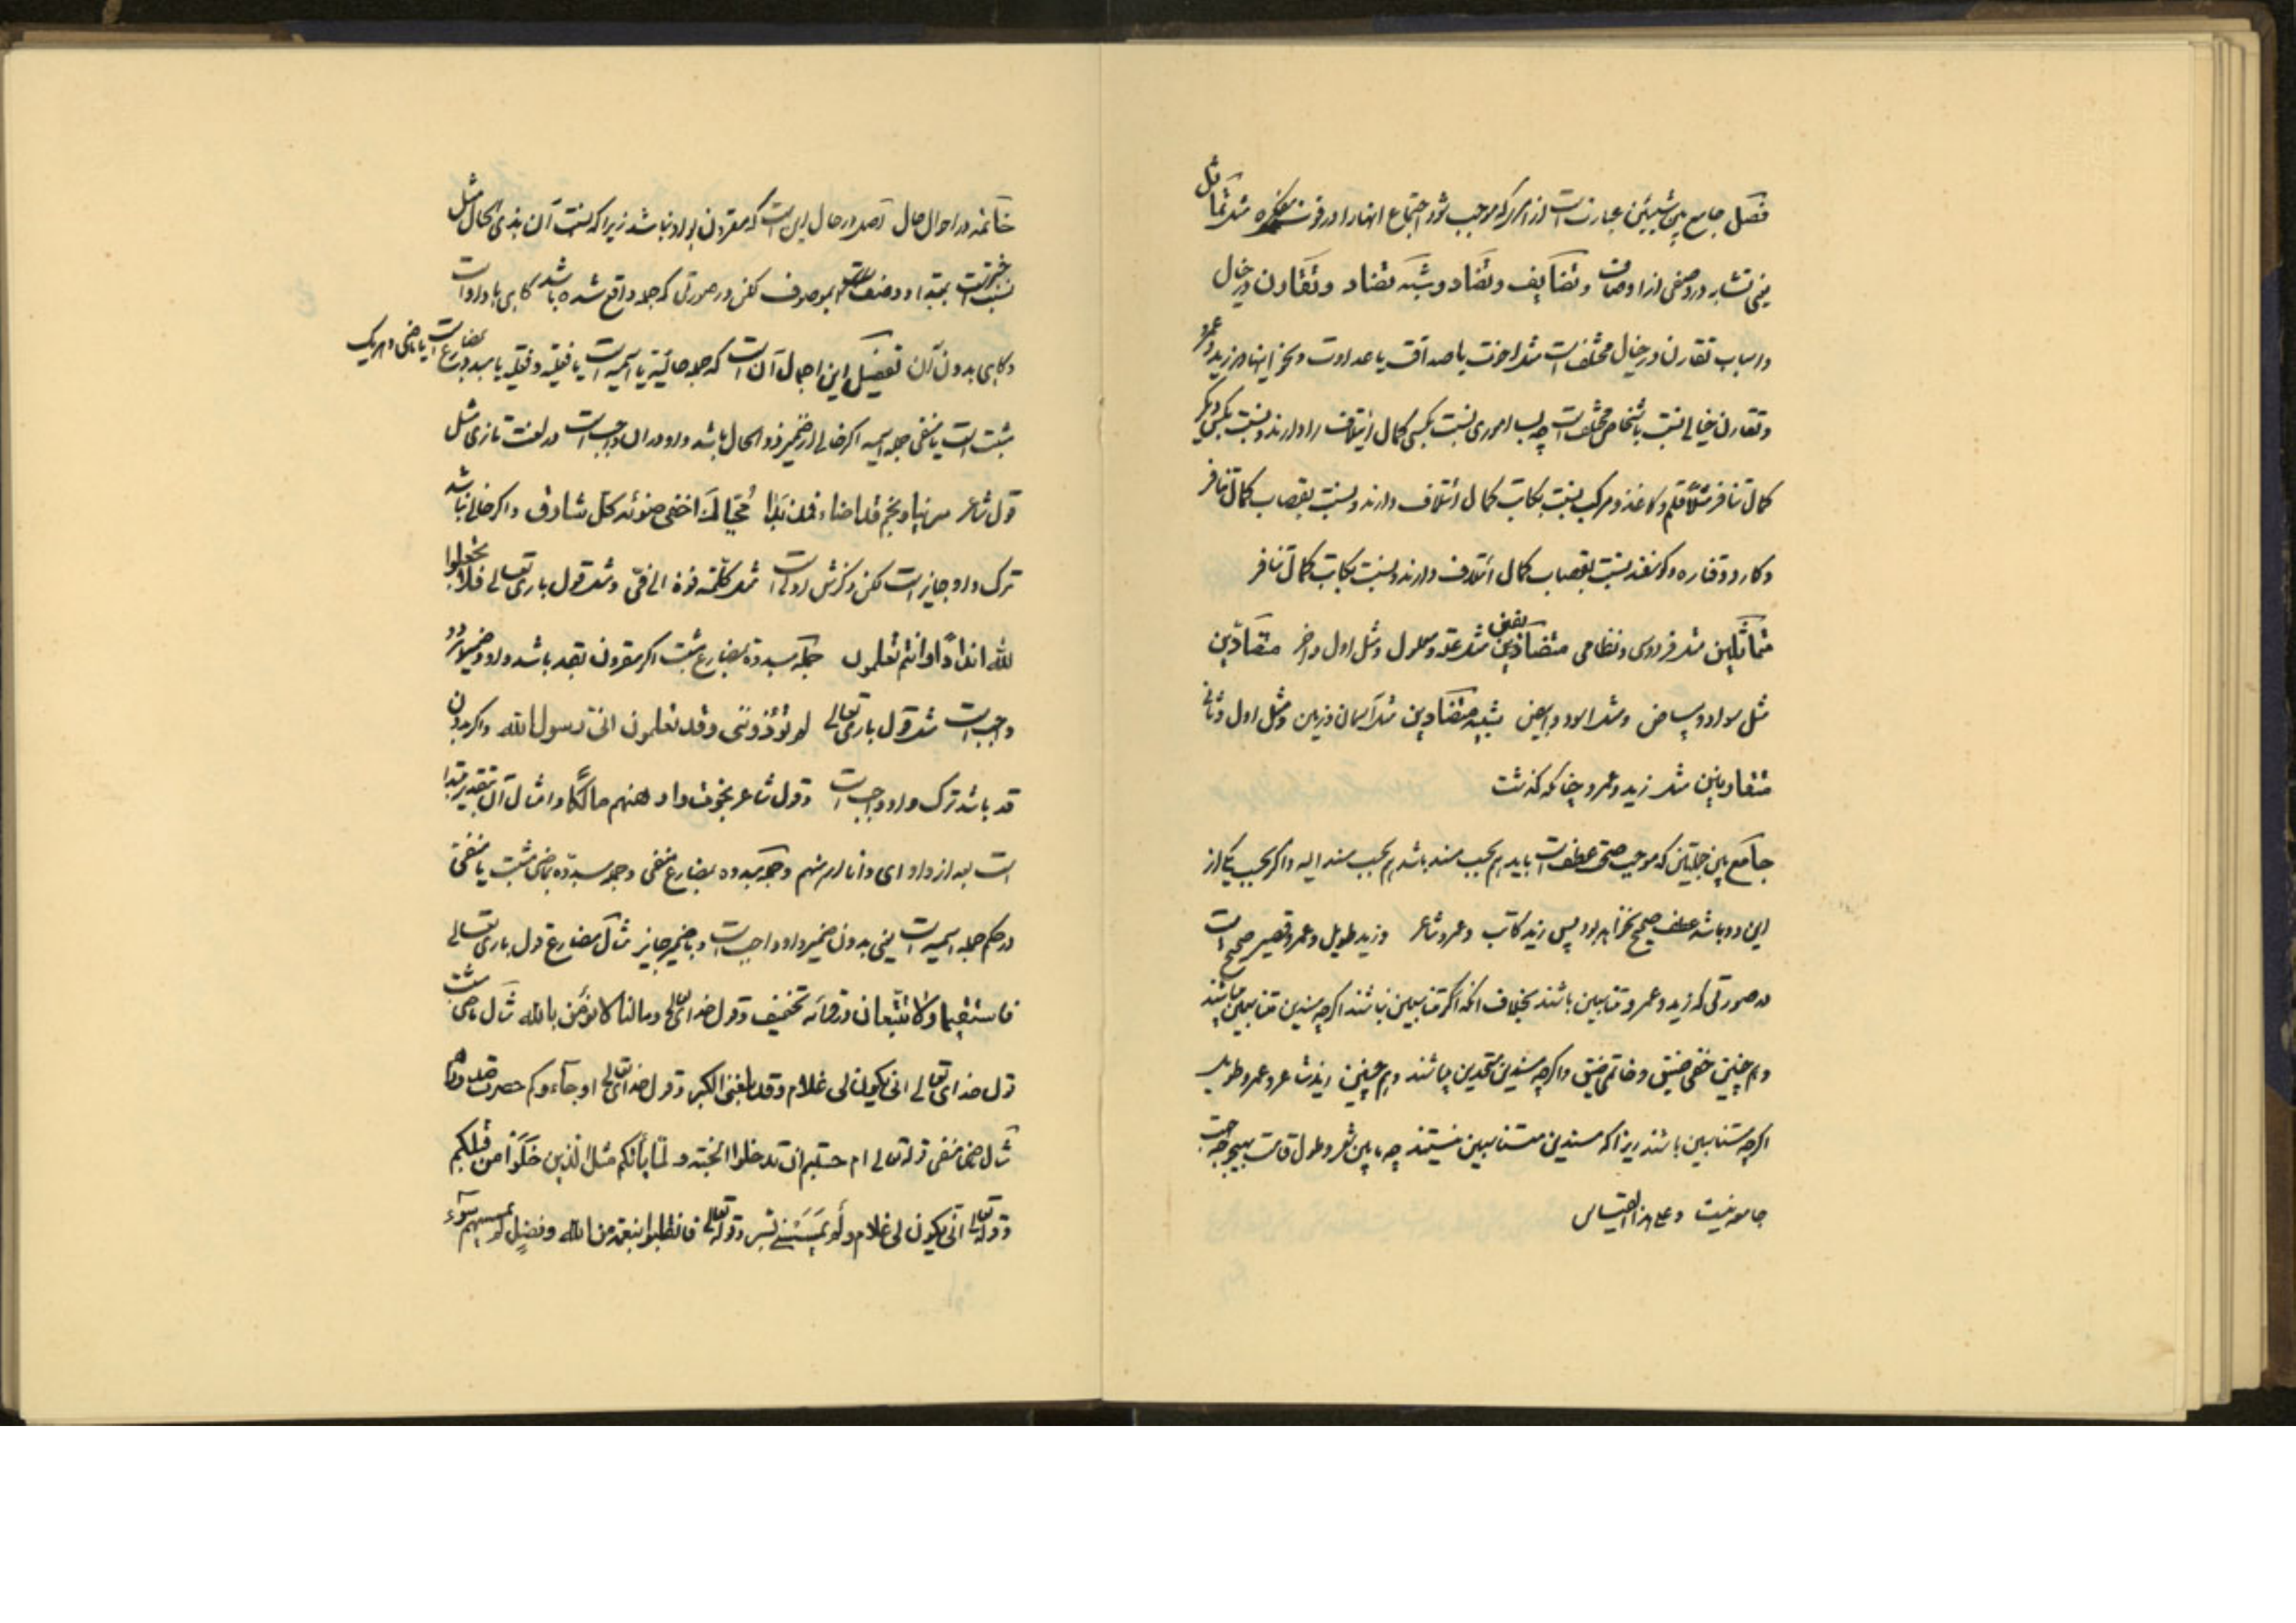 فصل جامع بین شیئین عبارتست از امریکه موجب شود اجتماع انها را در قوت مفکره مثل تماثل
یعنی تشابه در وصفی از اوصاف و تضایف و تضاد و شبه تضاد و تقارن در خیال
و اسباب تقارن در خیال مختلف است مثل اخوت یا صداقت یا عداوت و نحو اینها در زید و عمرو
و تقارن خیالی نسبت باشخاص مختلف است چه بسا اموری نسبت بکسی کمال ایتلاف را دارند و نسبت بکسی دیگر
کمال تنافر مثلاً قلم و کاغذ و مرکب نسبت بکاتب کمال ائتلاف دارند و نسبت بقصاب کمال تنافر
و کارد و قناره و کوسفند نسبت بقصاب کمال ائتلاف دارند و نسبت بکاتب کمال تنافر
متماثلین مثل فردوسی و نظامی متضایفین مثل علة و معلول و مثل اول و اخر متضادین
مثل سواد و بیاض و مثل اسود و ابیض شبیه متضادین مثل آسمان و زمین و مثل اول و ثانی
متقارنین مثل زید و عمرو چنانکه کذشت
جامع بین جملتین که موجب صحت عطف است باید هم بحسب مسند باشد هم بحسب مسند الیه و اکر بحسب یکی از
این دو باشد عطف صحیح نخواهد بود پس زید کاتب و عمرو شاعر و زید طویل و عمرو قصیر صحیح است
در صورتی که زید و عمرو متناسبین باشند بخلاف انکه اکر متناسبین نباشند اکرچه مسندین متناسبین باشند
و هم چنین خفی ضیق و خاتمی ضیق و اکرچه مسندین متحدین میباشند و هم چنین زید شاعر و عمرو طویل
اکرچه متناسبین باشند زیرا که مسندین متناسبین نیستند چه ما بین شعر و طول قامت بهیچ وجه جهت
جامعه نیست و علی هذا القیاس
خاتمه در احوال حال اصل در حال این است که مقرون بواو نباشد زیرا که نسبت آن بذی الحال مثل
نسبت خبر است بمبتدا و وصف است بموصوف لکن در صورتی که جمله واقع شده باشد کاهی با واو است
و کاهی بدون آن تفصیل این اجمال آن است که جمله حالیه یا اسمیه است یا فعلیه و فعلیه یا مبدو بمضارع است یا ماضی و هریک
مثبت است یا منفی جمله اسمیه اکر خالی از ضمیر ذو الحال باشد واو در ان واجب است در لغت تازی مثل
قول شاعر سرینا و نجم قد اضاء فمذ بدا محیاک اخفی ضوئه کل شارق و اکر خالی نباشد
ترک واو جایز است لکن ذکرش اولی است مثل کلمته فوه الی فی و مثل قول باری تعالی فلا تجعلوا
لله انداداً و انتم تعلمون جمله مبدوه بمضارع مثبت اکر مقرون بقد باشد واو و ضمیر هر دو
واجب است مثل قول باری تعالی لم تؤذوننی و قد تعلمون انی رسول الله و اکر بدون
قد باشد ترک واو واجب است و قول شاعر نجوت و ارهنهم مالکاً و امثال آن بتقدیر مبتدا
است بعد از واو ای و انا ارهنهم و جمله مبدوه بمضارع منفی و جمله مبدوّه بماضی مثبت یا منفی
در حکم جمله اسمیه است یعنی بدون ضمیر واو واجب است و با ضمیر جایز مثال مضارع قول باری تعالی
فاستقیما و لا تتبعان در قرائه تخفیف و قول خدای تعالی و مالنا لا نؤمن بالله مثال ماضی مثبت
قول خدای تعالی انی یکون لی غلام و قد بلغنی الکبر و قول خدای تعالی او جاءوکم حصرت صدورهم
مثال ماضی منفی قوله تعالی ام حسبتم ان تدخلوا الجنة و لما یأتکم مثل الذین خلوا من قبلکم
و قوله تعالی انی یکون لی غلام و لم یمسسنی بشر و قوله تعالی فانقلبوا بنعمة من الله و فضل لم یمسسهم سوء